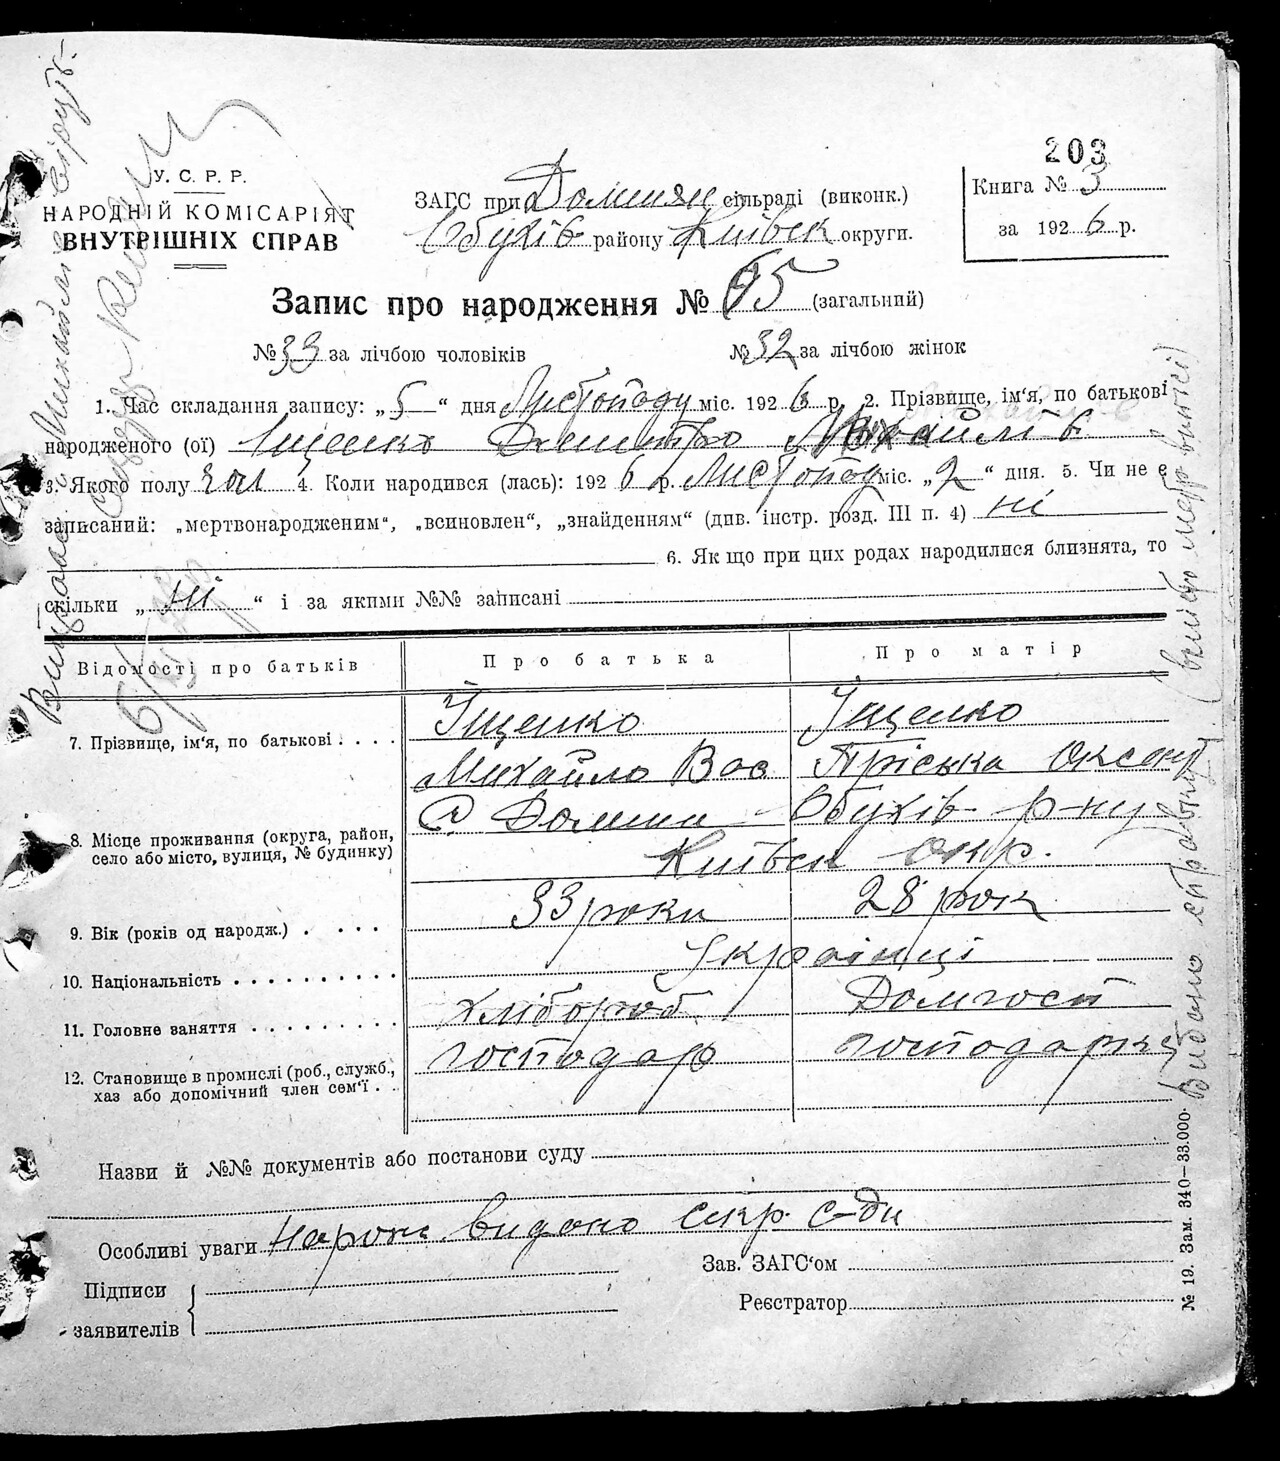 203
У. С. Р. Р.
НАРОДНІЙ КОМІСАРІЯТ
ВНУТРІШНІХ СПРАВ
ЗАГС при Домиян сільраді (виконк.)
Обухів району Київск округи.
Книга № 3
за 1926 р.
Запис про народження № 65 (загальний)
№ 33 за лічбою чоловіків № 32 за лічбою жінок
1. Час складання запису: „5“ дня Листопаду міс. 1926 р. 2. Прізвище, ім'я, по батькові
народженого (ої) Іщенко Дмитро Михайлів
3. Якого полу чол 4. Коли народився (лась): 1926 р. Листопаду міс. „2“ дня. 5. Чи не є
записаний: „мертвонародженим“, „всиновлен“, „знайденням“ (див. інстр. розд. III п. 4) ні
6. Як що при цих родах народилися близнята, то
скільки „ні“ і за якими №№ записані
Відомості про батьків Про батька Про матір
7. Прізвище, ім'я, по батькові . . . . Іщенко Іщенко
Михайло Вас Пріська Оксент
8. Місце проживання (округа, район, село або місто, вулиця, № будинку) с. Домин Обухів р-ну
Київск окр.
9. Вік (років од народж.) . . . . 33 роки 28 рок
10. Національність . . . . . . . . . Українці
11. Головне заняття . . . . . . . . . хлібороб Домгосп
12. Становище в промислі (роб., служб., хаз або допомічний член сем'ї . . господар господарка
Назви й №№ документів або постанови суду
Особливі уваги видано скр. с-ди
Підписи
заявителів
Зав. ЗАГС'ом
Реєстратор
№ 19. Зам. 340—33.000.
Видано справку